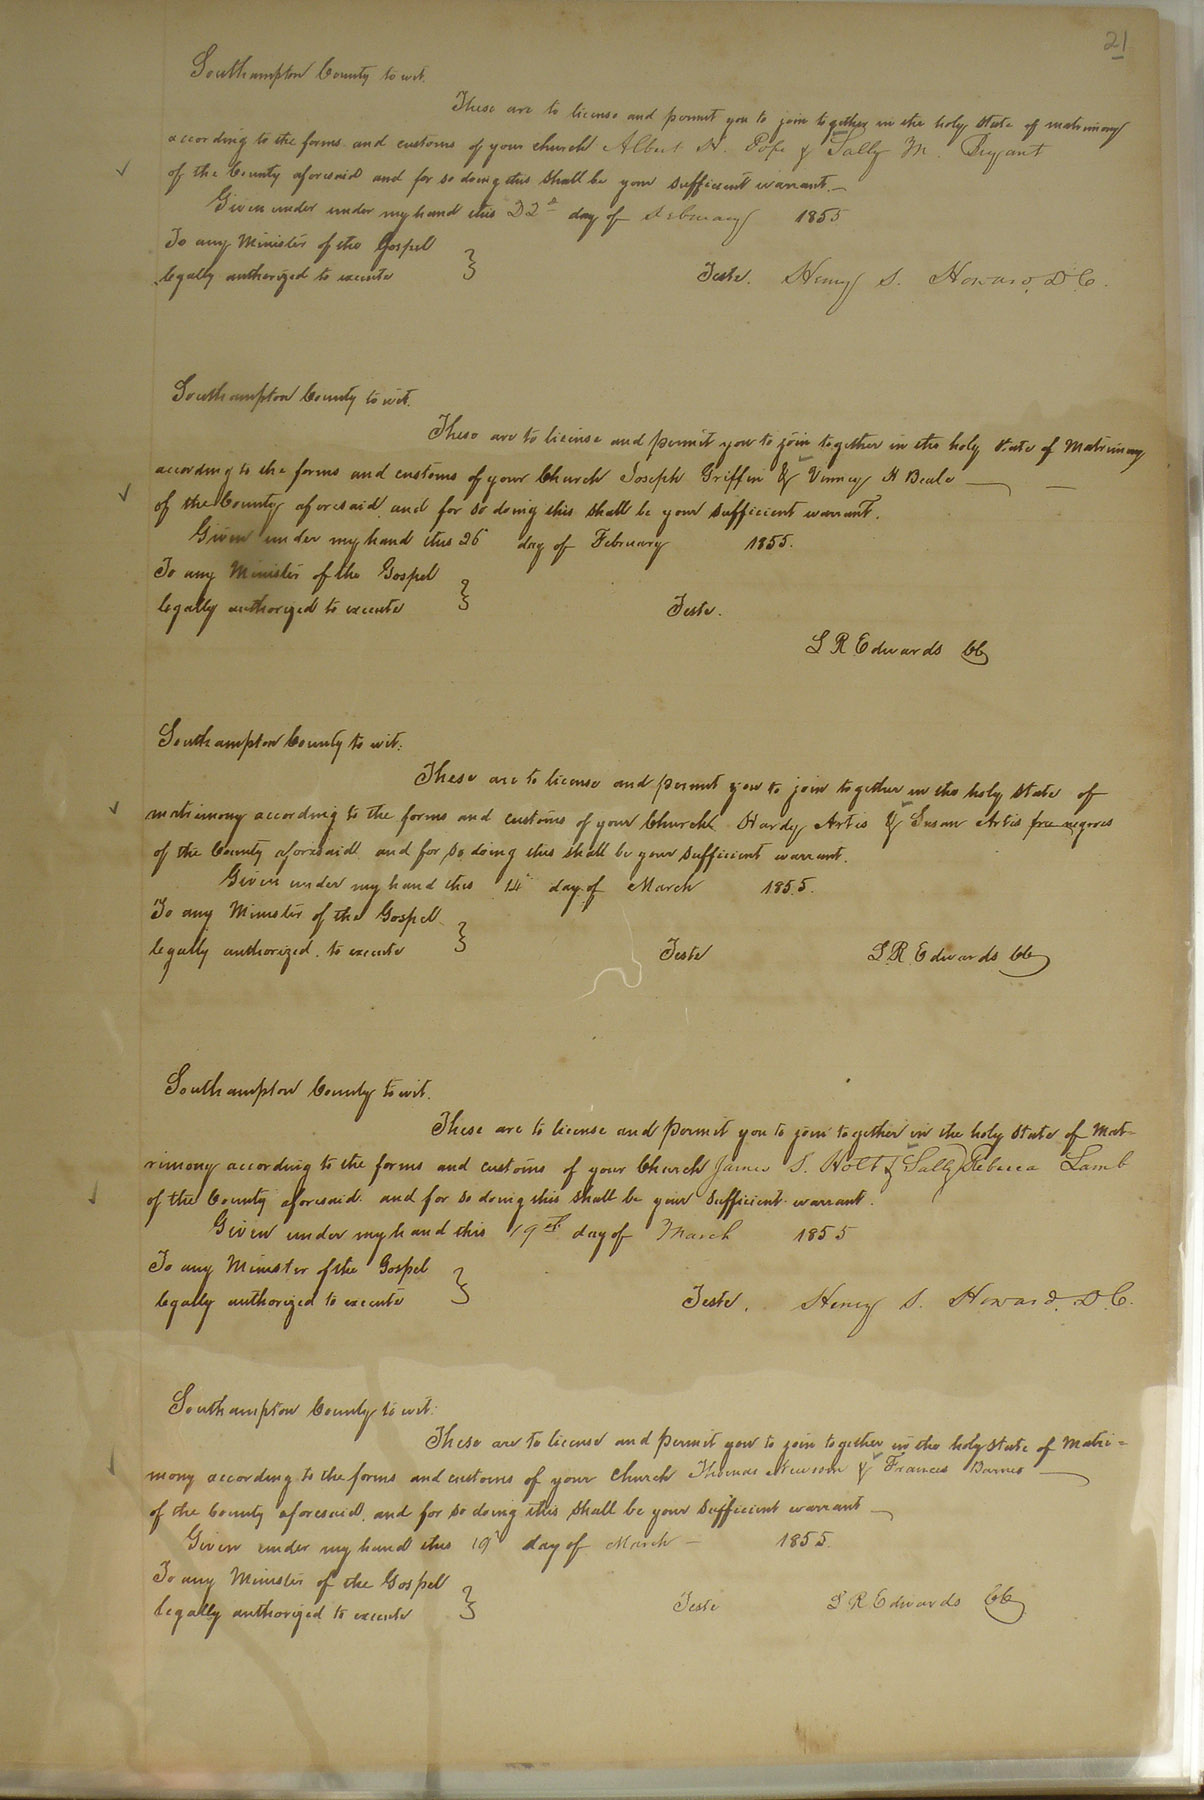 21
Southampton County to wit.
These are to license and permit you to join together in the holy state of matrimony
according to the forms and customs of your church Albert H. Pope & Sally M. Bryant
of the County aforesaid and for so doing this shall be your sufficient warrant.
Given under under my hand this 22d day of February 1855
To any Minister of the Gospel
legally authorized to execute } Teste. Henry S. Howard, D.C.
Southampton County to wit.
These are to license and permit you to join together in the holy state of Matrimony
according to the forms and customs of your Church Joseph Griffin & H Beale
of the County aforesaid and for so doing this shall be your sufficient warrant.
Given under my hand this 26 day of February 1855.
To any Minister of the Gospel
legally authorized to execute } Teste.
L R Edwards CC
Southampton County to wit:
These are to license and permit you to join together in the holy state of
matrimony according to the forms and customs of your Church Hardy Artis & Susan Artis free negroes
of the County aforesaid and for so doing this shall be your sufficient warrant.
Given under my hand this 14 day of March 1855.
To any Minister of the Gospel
legally authorized to execute } Teste L.R. Edwards CC
Southampton County to wit.
These are to license and permit you to join together in the holy state of Mat-
rimony according to the forms and customs of your Church James S. Holt & Sally Rebecca Lamb
of the County aforesaid and for so doing this shall be your sufficient warrant.
Given under my hand this 19th day of March 1855
To any Minister of the Gospel
legally authorized to execute } Teste. Henry S. Howard, D.C.
Southampton County to wit:
These are to license and permit you to join together in the holy state of Matri=
mony according to the forms and customs of your Church Thomas Newsom & Frances Barnes
of the County aforesaid, and for so doing this shall be your sufficient warrant
Given under my hand this 19 day of March 1855.
To any Minister of the Gospel
legally authorized to execute } Teste L R Edwards CC